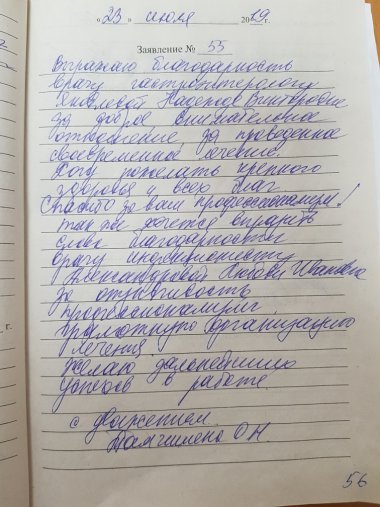 «23» июля 2019 г.
Заявление № 55
Выражаю благодарность
врачу гастроэнтерологу
Яковлевой Надежде Викторовне
за доброе внимательное
отношение, за проведенное
своевременное лечение.
Хочу пожелать крепного
здоровья и всех благ.
Спасибо за ваш профессионализм!
так же хочется выразить
слова благодарности
врачу
Александровой Любови Ивановне
за отзывчивость
профессионализм,
грамотную организацию
лечения.
желаю дальнейших
успехов в работе.
с уважением.
О Н.
56